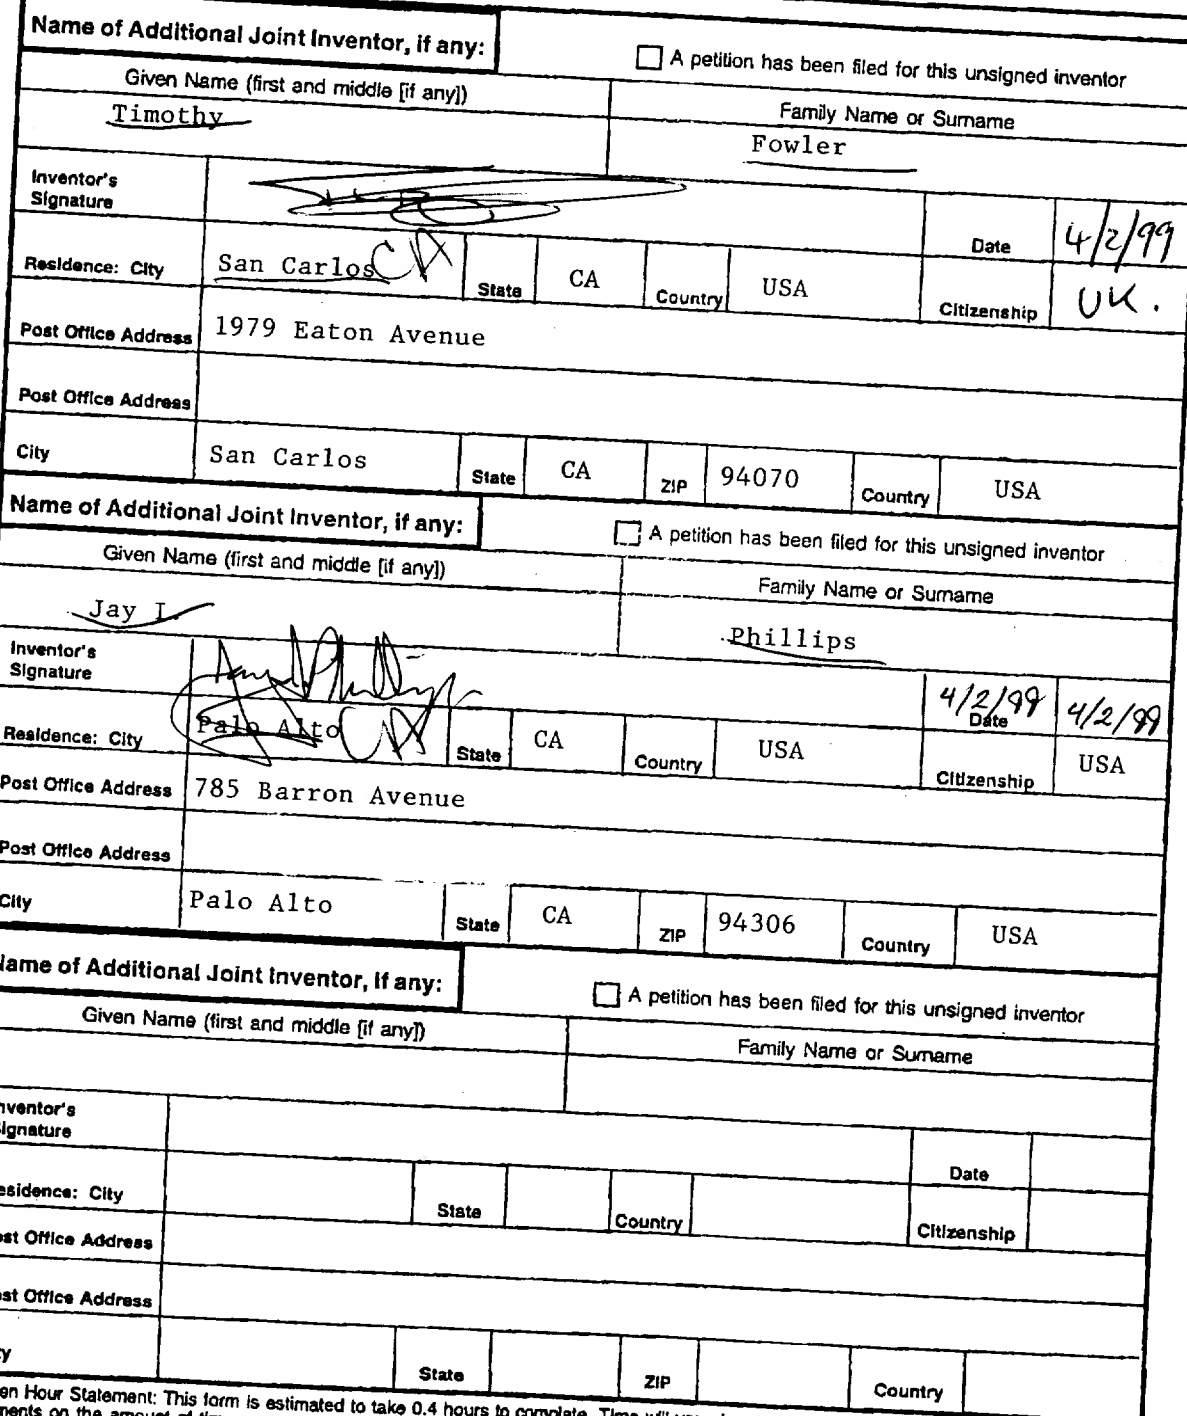 Name of Additional Joint Inventor, if any:
A petition has been filed for this unsigned inventor
Given Name (first and middle [if any])
Family Name or Surname
Timothy
Fowler
Inventor's
Signature
Date
4/2/99
Residence: City
San Carlos CA
State
CA
Country
USA
Citizenship
UK.
Post Office Address
1979 Eaton Avenue
Post Office Address
City
San Carlos
State
CA
ZIP
94070
Country
USA
Name of Additional Joint Inventor, if any:
A petition has been filed for this unsigned inventor
Given Name (first and middle [if any])
Family Name or Surname
Jay I.
Phillips
Inventor's
Signature
4/2/99
Date
4/2/99
Residence: City
Palo Alto CA
State
CA
Country
USA
Citizenship
USA
Post Office Address
785 Barron Avenue
Post Office Address
City
Palo Alto
State
CA
ZIP
94306
Country
USA
Name of Additional Joint Inventor, if any:
A petition has been filed for this unsigned inventor
Given Name (first and middle [if any])
Family Name or Surname
nventor's
ignature
Date
esidence: City
State
Country
Citizenship
ost Office Address
ost Office Address
ty
State
ZIP
Country
en Hour Statement: This form is estimated to take 0.4 hours to complete. Time will
ments on the amount of